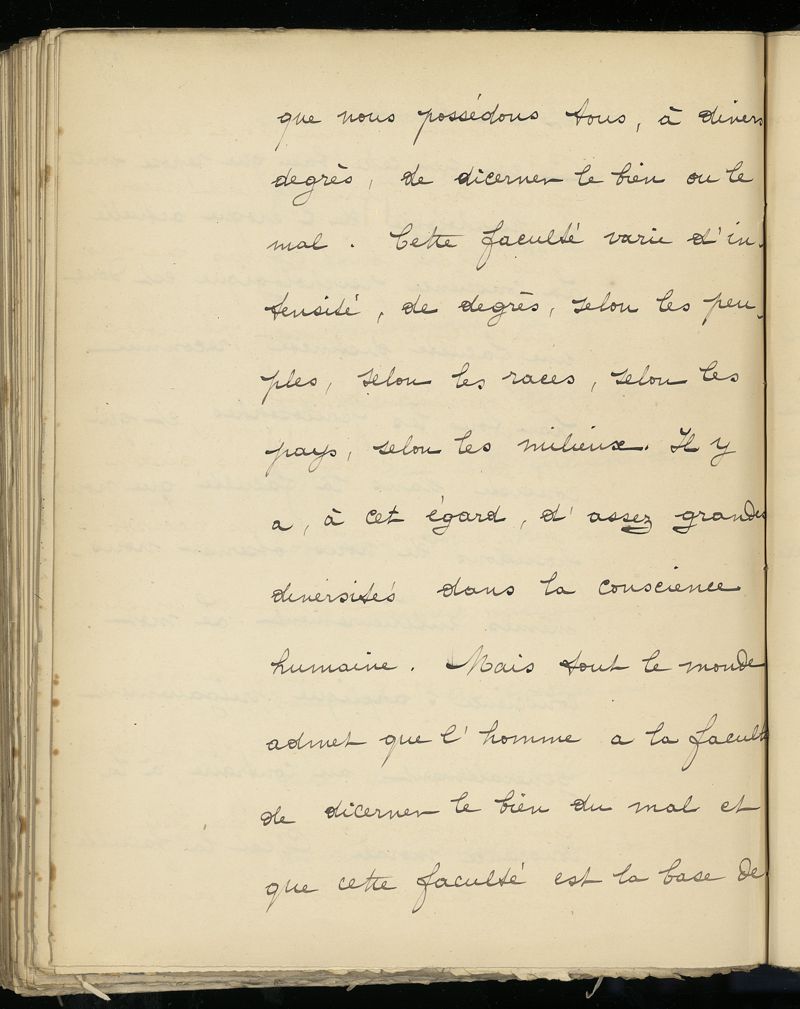 que nous possédons tous, à divers
degrès, de dicerner le bien ou le
mal. Cette faculté varie d'in-
tensité, de degrès, selon les peu-
ples, selon les races, selon les
pays, selon les milieux. Il y
a, à cet égard, d'assez grandes
diversités dans la conscience
humaine. Mais tout le monde
admet que l'homme a la faculté
de dicerner le bien du mal et
que cette faculté est la base de